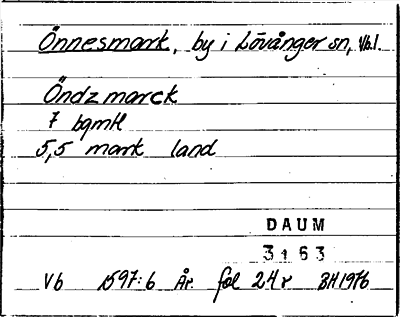 Önnesmark, by i Lövånger sn, Vb.l.
Öndzmarck
7 bgmtl
5,5 mark land
DAUM
3163
Vb 1597:6 År. fol 24r BH1976